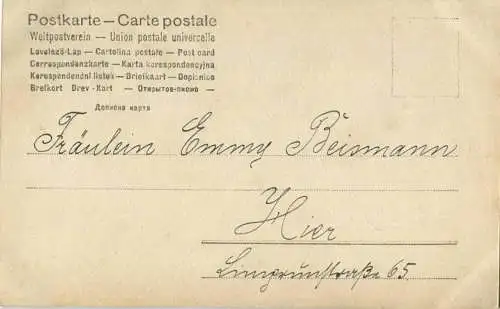 Postkarte — Carte postale
Weltpostverein — Union postale universelle
Levelező-Lap — Cartolina postale — Post card
Correspondenzkarte — Karta korespondencyjna
Korespondenční lístek — Briefkaart — Dopisnice
Brefkort Brev-Kort — Открытое письмо —
Дописна карта
Fräulein Emmy Beismann
Hier
Limprunstraße 65